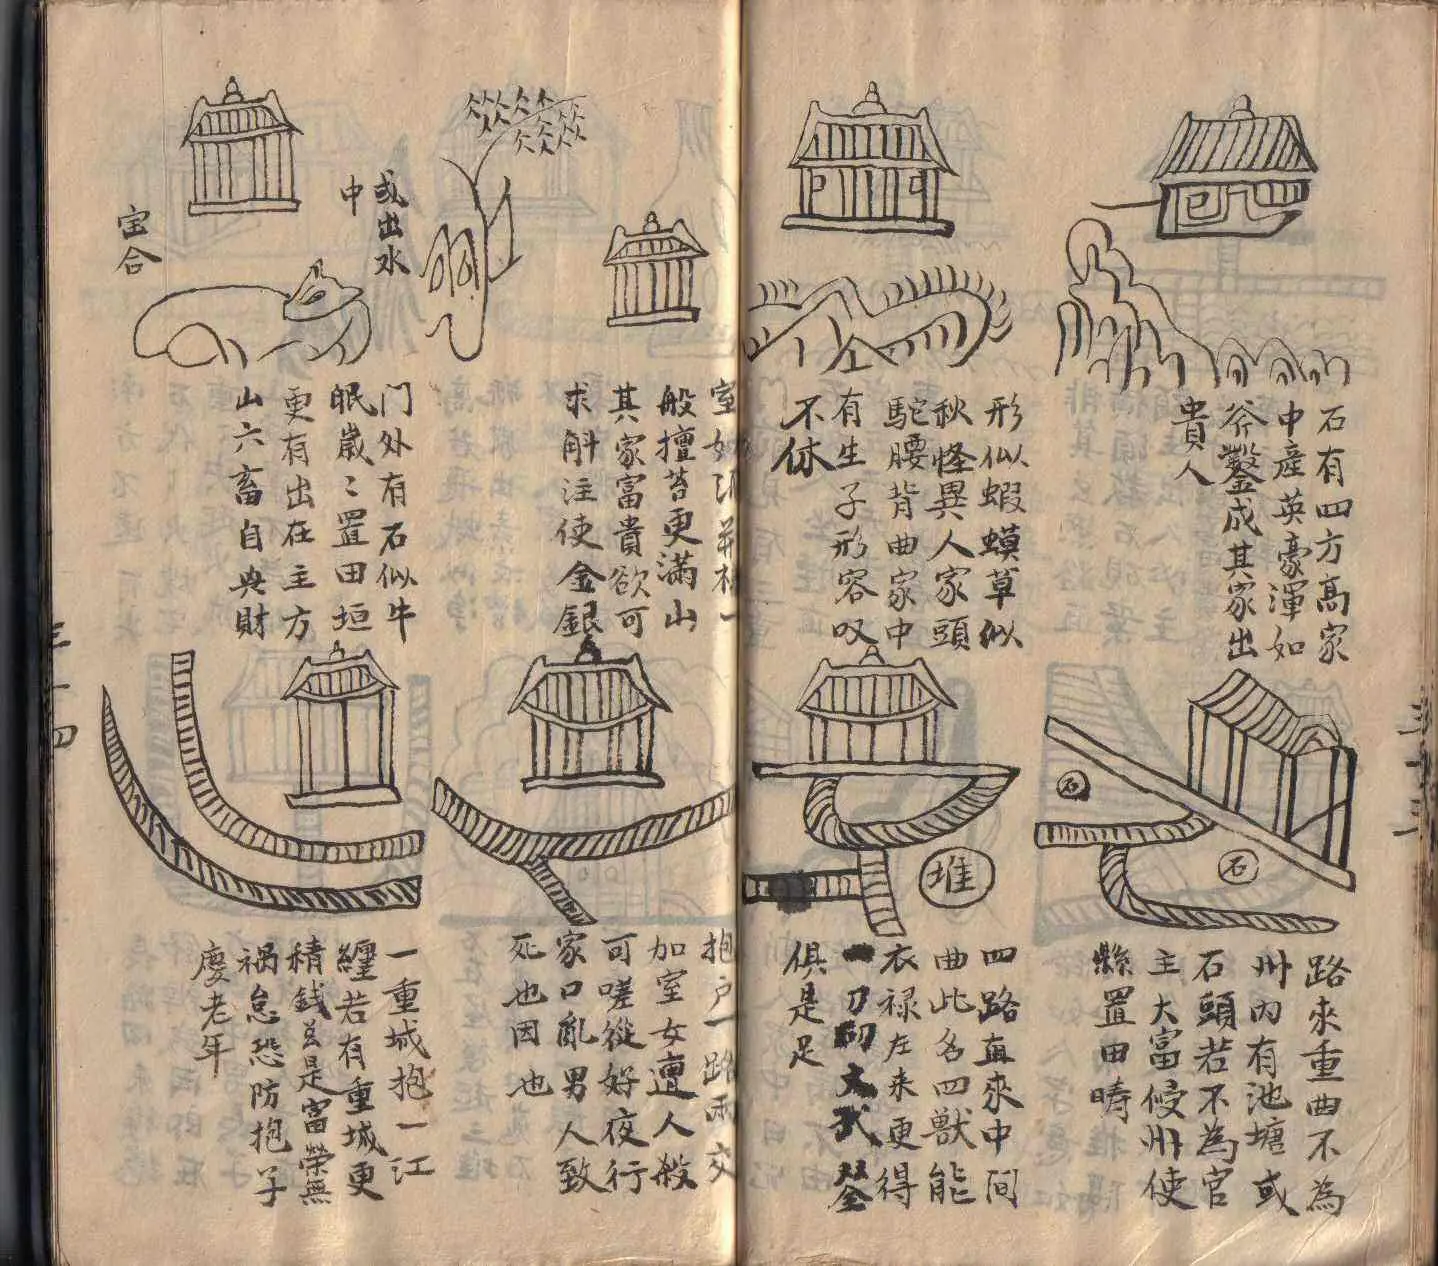 石有四方高家
中産英豪渾如
斧鑿成其家出
貴人
形似蝦蟆草似
秋怪異人家頭
駝腰背曲家中
有生子形容叹
不休
石
石
路來重曲不為
州内有池塘或
石頭若不為官
主大富候州使
縣置田疇
堆
四路直來中間
曲此名四獸能
衣禄左来更得
一刀
文武
俱是足
般擅苔更滿山
其家富貴欲可
求斛注使金銀
或出水
中
宝合
门外有石似牛
眠歲〻置田垣
更有出在主方
山六畜自典財
抱户一路兩交
加室女遭人殺
可嗟從好夜行
家口亂男人致
死也因也
一重城抱一江
纏若有重城更
積錢玄是富榮無
禍怠恐防抱子
慶老年